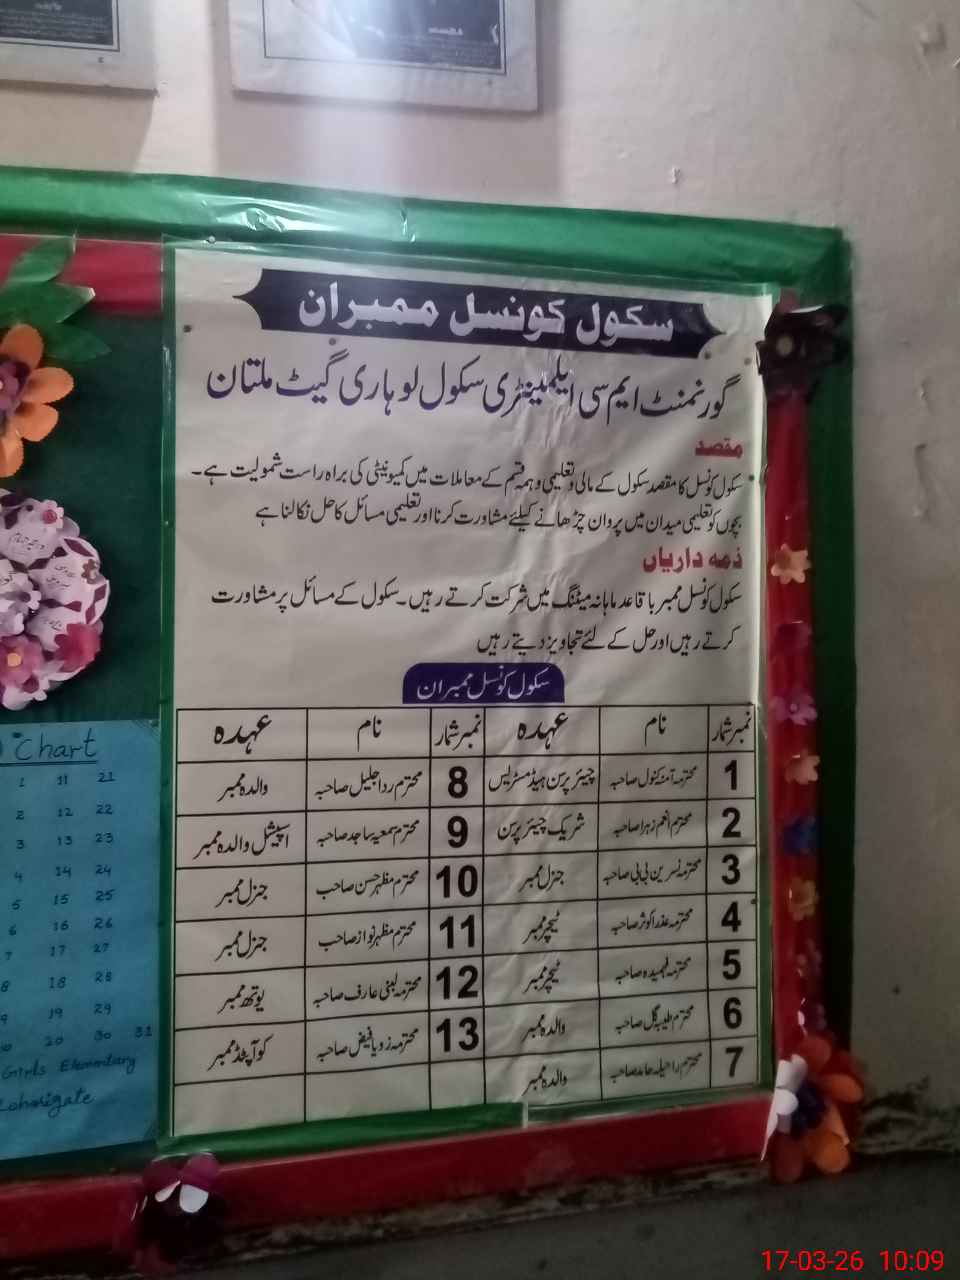 سکول کونسل ممبران
گورنمنٹ ایم سی ایلیمینٹری سکول لوہاری گیٹ ملتان
مقصد
سکول کونسل کا مقصد سکول کے مالی و تعلیمی و ہمہ قسم کے معاملات میں کمیونیٹی کی براہ راست شمولیت ہے۔
بچوں کو تعلیمی میدان میں پروان چڑھانے کیلئے مشاورت کرنا اور تعلیمی مسائل کا حل نکالنا ہے
ذمہ داریاں
سکول کونسل ممبر باقاعدہ ماہانہ میٹنگ میں شرکت کرتے رہیں۔ سکول کے مسائل پر مشاورت
کرتے رہیں اور حل کے لئے تجاویز دیتے رہیں
سکول کونسل ممبران
نمبر شمار نام عہدہ نمبر شمار نام عہدہ
1 محترمہ آمنہ کنول صاحبہ چیئر پرسن ہیڈ مسٹریس 8 محترم ردا جلیل صاحبہ والدہ ممبر
2 محترم انعم زہرا صاحبہ شریک چیئر پرسن 9 محترم سمعیہ ساجد صاحبہ اسپیشل والدہ ممبر
3 محترمہ نسرین بی بی صاحبہ جنرل ممبر 10 محترم مظہر حسن صاحب جنرل ممبر
4 محترمہ عذرا کوثر صاحبہ ٹیچر ممبر 11 محترم مظہر نواز صاحب جنرل ممبر
5 محترمہ فہمیدہ صاحبہ ٹیچر ممبر 12 محترمہ لبنیٰ عارف صاحبہ یوتھ ممبر
6 محترم طیبہ گل صاحبہ والدہ ممبر 13 محترمہ زویا فیض صاحبہ کوآپٹڈ ممبر
7 محترم راحیلہ حامد صاحبہ والدہ ممبر
Chart
1 11 21
2 12 22
3 13 23
4 14 24
5 15 25
6 16 26
7 17 27
8 18 28
9 19 29
20 30 31
Girls Elementary
Lohari gate
17-03-26 10:09